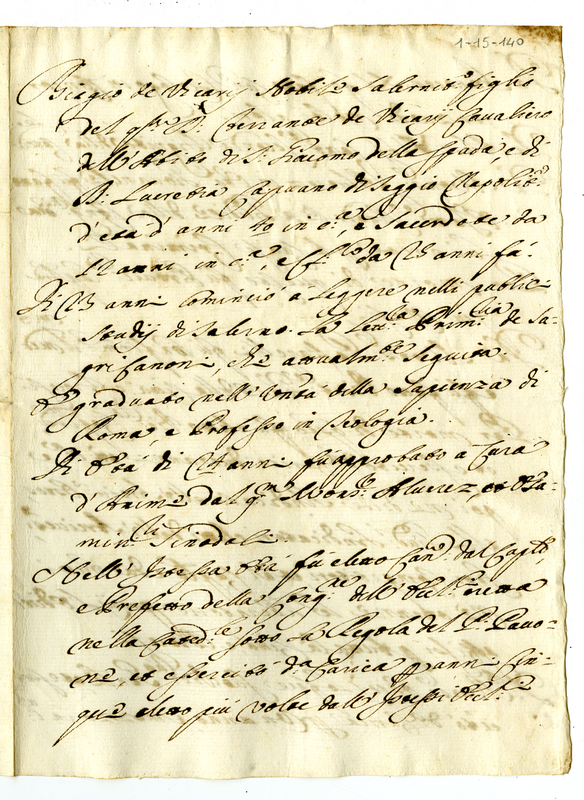 1-15-140
Biagio de Vicarij Nobile Salernit.º figlio
del q.m D. Ferrante de Vicarij Cavaliero
dell'Abito di S. Giacomo della Spada, e di
D. Lucretia Capuano di Seggio Napolit.º
d'età d'anni 40 in c.ª, e Sacerdote da
12 anni in c.ª, e da 23 anni fà.
Di 23 anni cominciò à leggere nelli publici
studij di Salerno la de Sa-
gri Canoni, che attualm.te seguita.
È graduato nell'Un.tà della Sapienza di
Roma, e Professo in Teologia.
Di età di 24 anni fù approbato a Cura
d'Anime dal q.m Mons.r Alvarez, et Esa-
min.ri Sinodali.
Nell'istessa età fù eletto Can.º dal Cap.lo,
e Prefetto della Cong.ne dell' eretta
nella Cated.le sotto la Regola del P. Pavo-
ne, et essercitò d.ª Carica p anni cin-
que eletto più volte dall'istessi